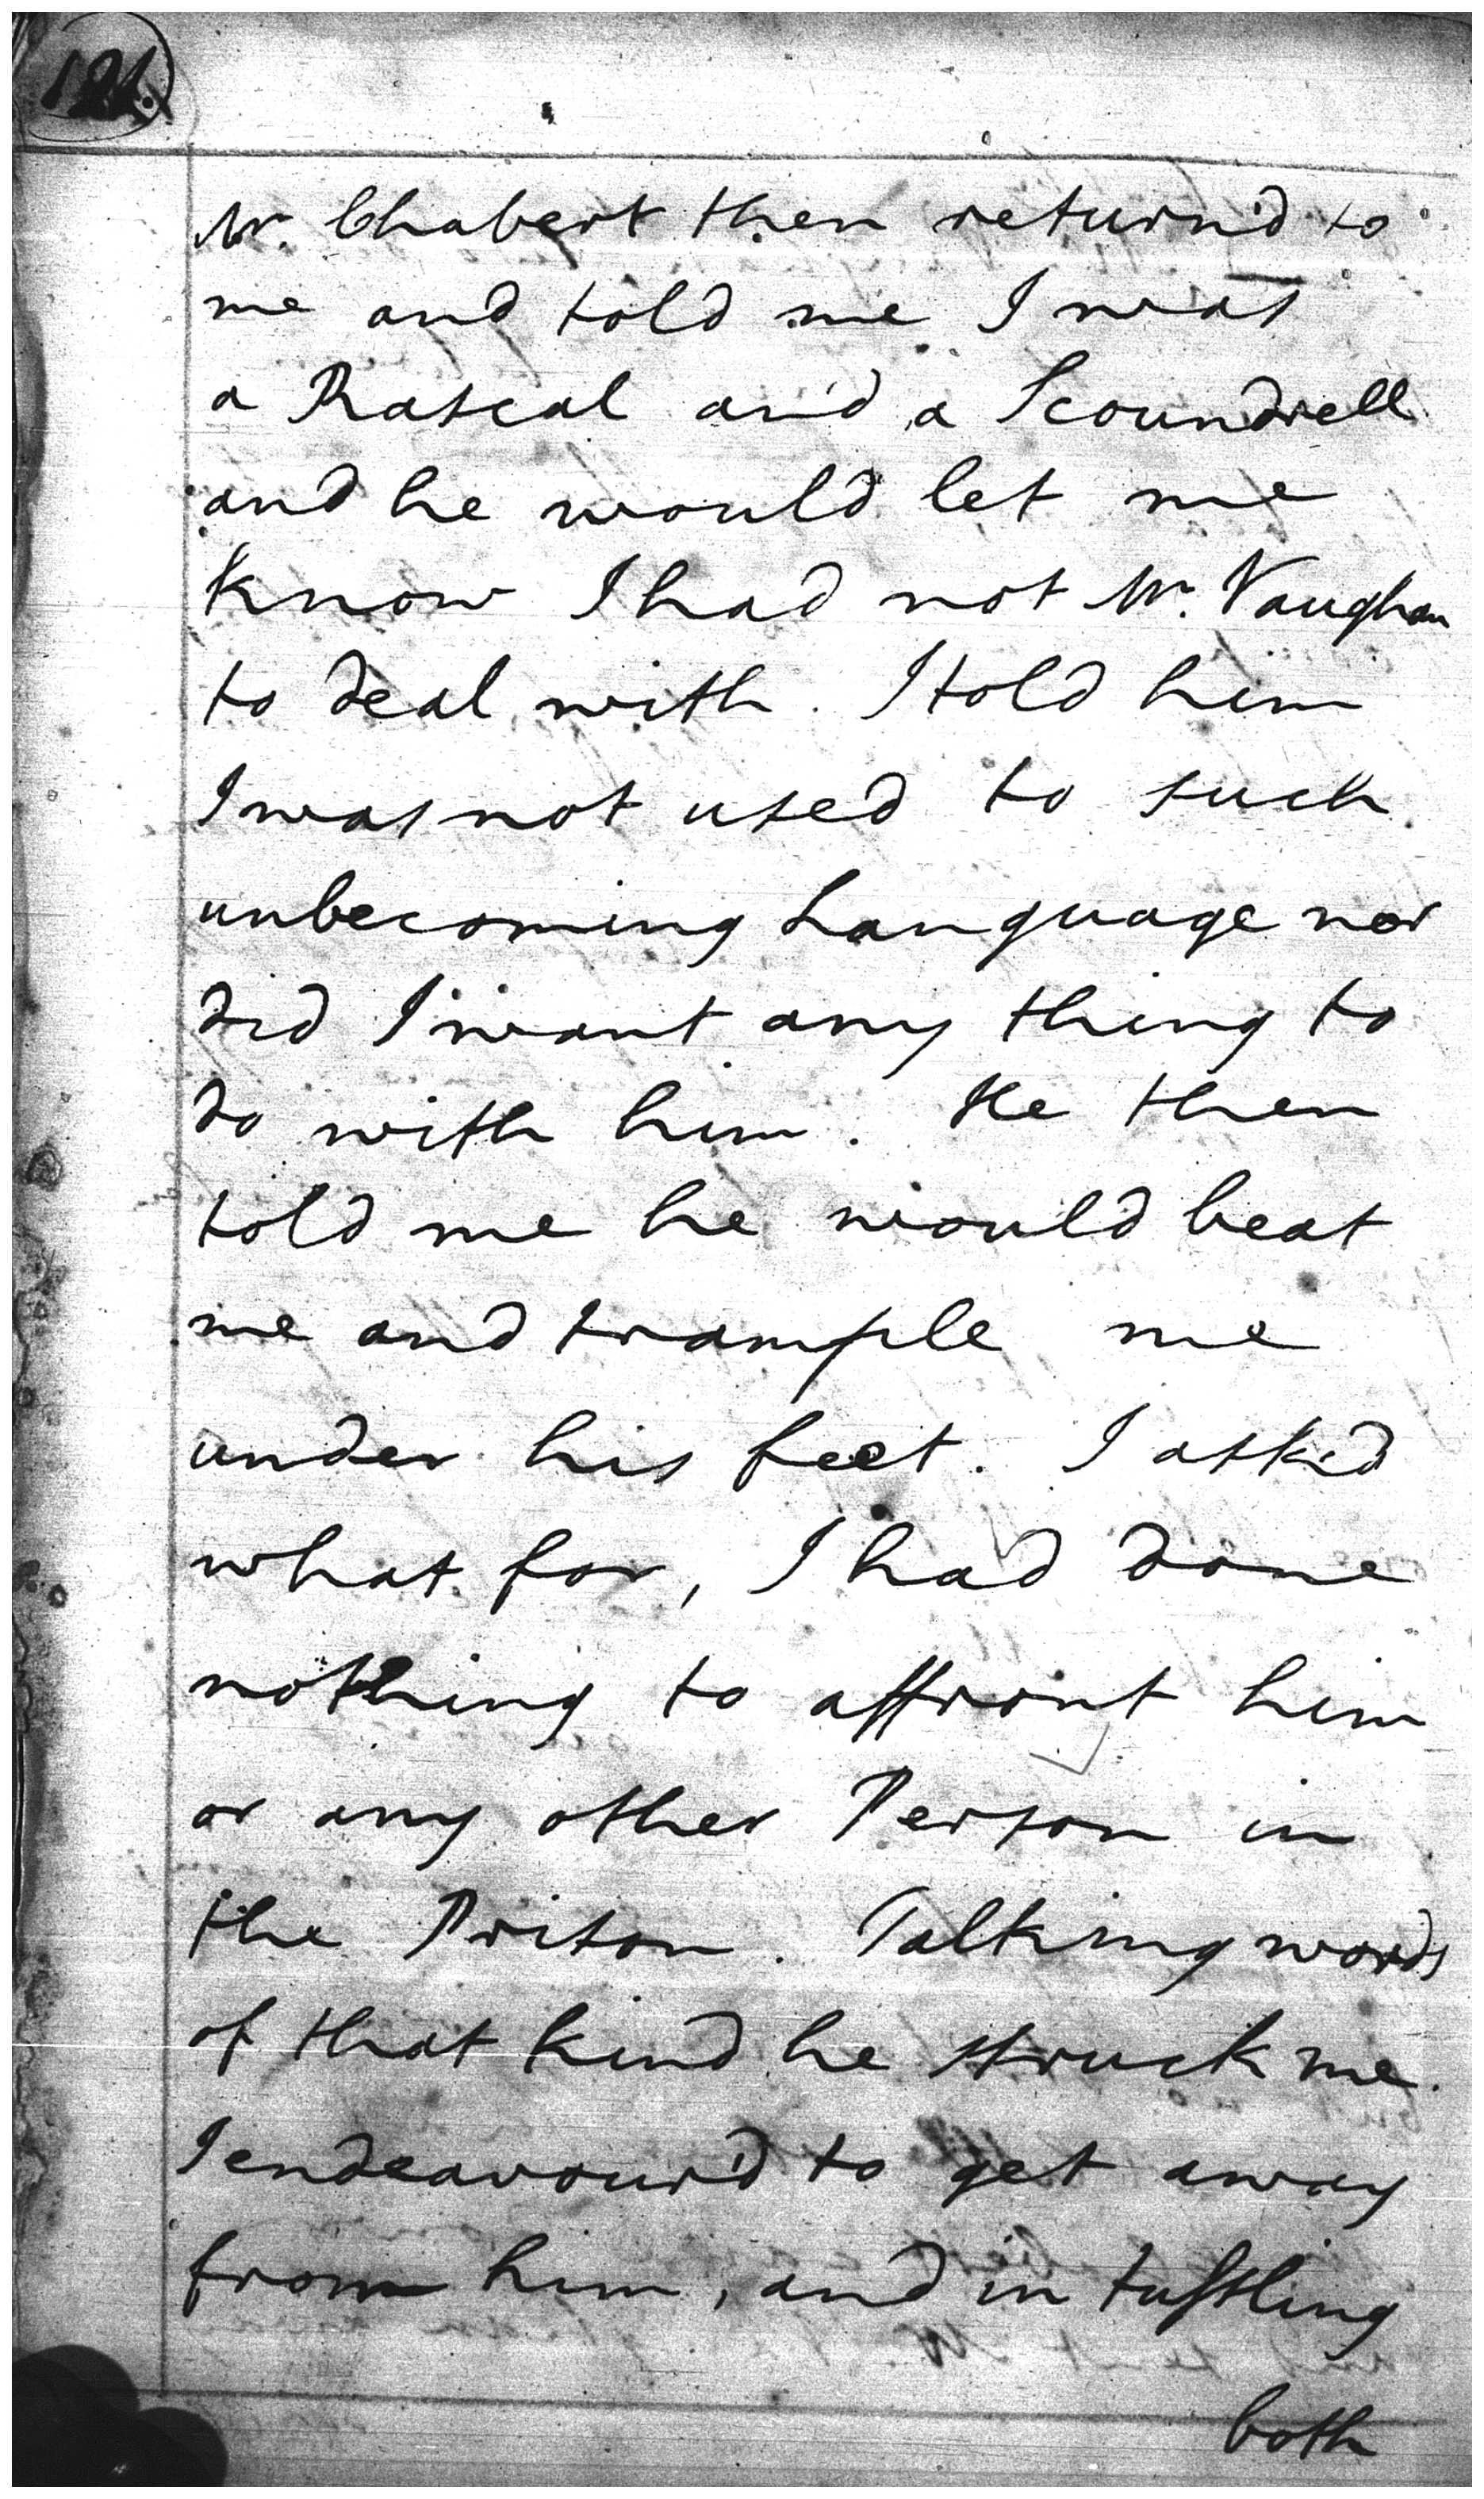 Mr. Chabert then return'd to
me and told me I was
a Rascal and a Scoundrell
and he would let me
know I had not Mr. Vaughan
to deal with. I told him
I was not used to such
unbecoming Language nor
did I want any thing to
do with him. He then
told me he would beat
me and trample me
under his feet. I ask'd
what for, I had done
nothing to affront him
or any other Person in
the Prison. Talking words
of that kind he struck me.
I endeavour'd to get away
from him, and in tussling
both